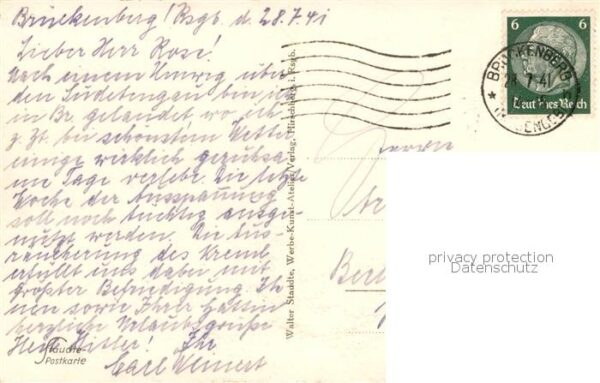 Brückenberg / Rsgb. d. 28.7.41
Lieber Herr Rose!
Nach einem Umweg über
den Sudetengau bin ich
in Br. gelandet, wo ich
z. Zt. bei schönstem Wetter
einige wirklich geruhsa-
me Tage verlebe. Die letzte
Woche der Ausspannung
soll noch tüchtig ausge-
nützt werden. Die Aus-
räucherung des Kreml
erfüllt uns dabei mit
größter Befriedigung. Ih-
nen sowie Ihrer Gattin
herzliche Urlaubsgrüße
Heil Hitler! Ihr
Carl
Staudte-
Postkarte
Walter Staudte, Werbe-Kunst-Atelier/Verlag, Hirschberg i. Rsgb.
Herrn
Berl
6 6
Deutsches Reich
BRÜCKENBERG
28.7.41
privacy protection
Datenschutz